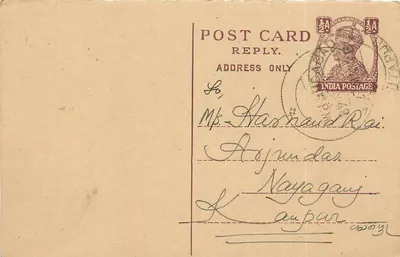 ½A ½A
POST CARD
REPLY.
ADDRESS ONLY
INDIA POSTAGE
To,
M/s Harnand Rai
Arjundas
Nayaganj
Kanpur